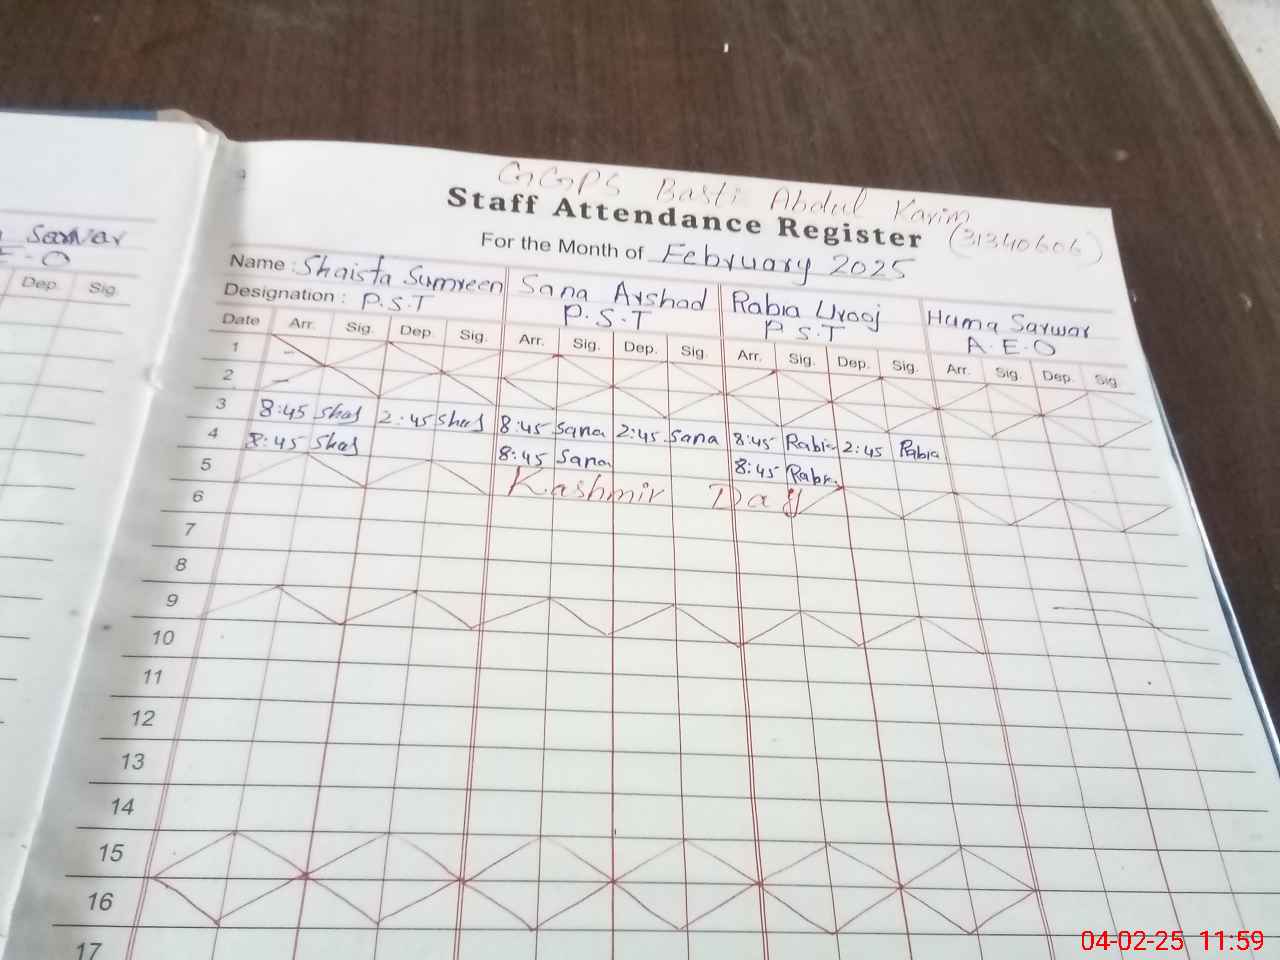 GGPS Basti Abdul Karim
Staff Attendance Register (31340606)
For the Month of February 2025
Sarwar
Dep. Sig.
Name : Shaista Sumreen Sana Arshad Rabia Urooj Huma Sarwar
Designation : P.S.T P.S.T P.S.T A.E.O
Date Arr. Sig. Dep. Sig. Arr. Sig. Dep. Sig. Arr. Sig. Dep. Sig. Arr. Sig. Dep. Sig.
1 -
2 -
3 8:45 Shas 2:45 Shas 8:45 Sana 2:45 Sana 8:45 Rabia 2:45 Rabia
4 8:45 Shas 8:45 Sana 8:45 Rabia
5 Kashmir Day
6
7
8
9
10
11
12
13
14
15
16
17
04-02-25 11:59